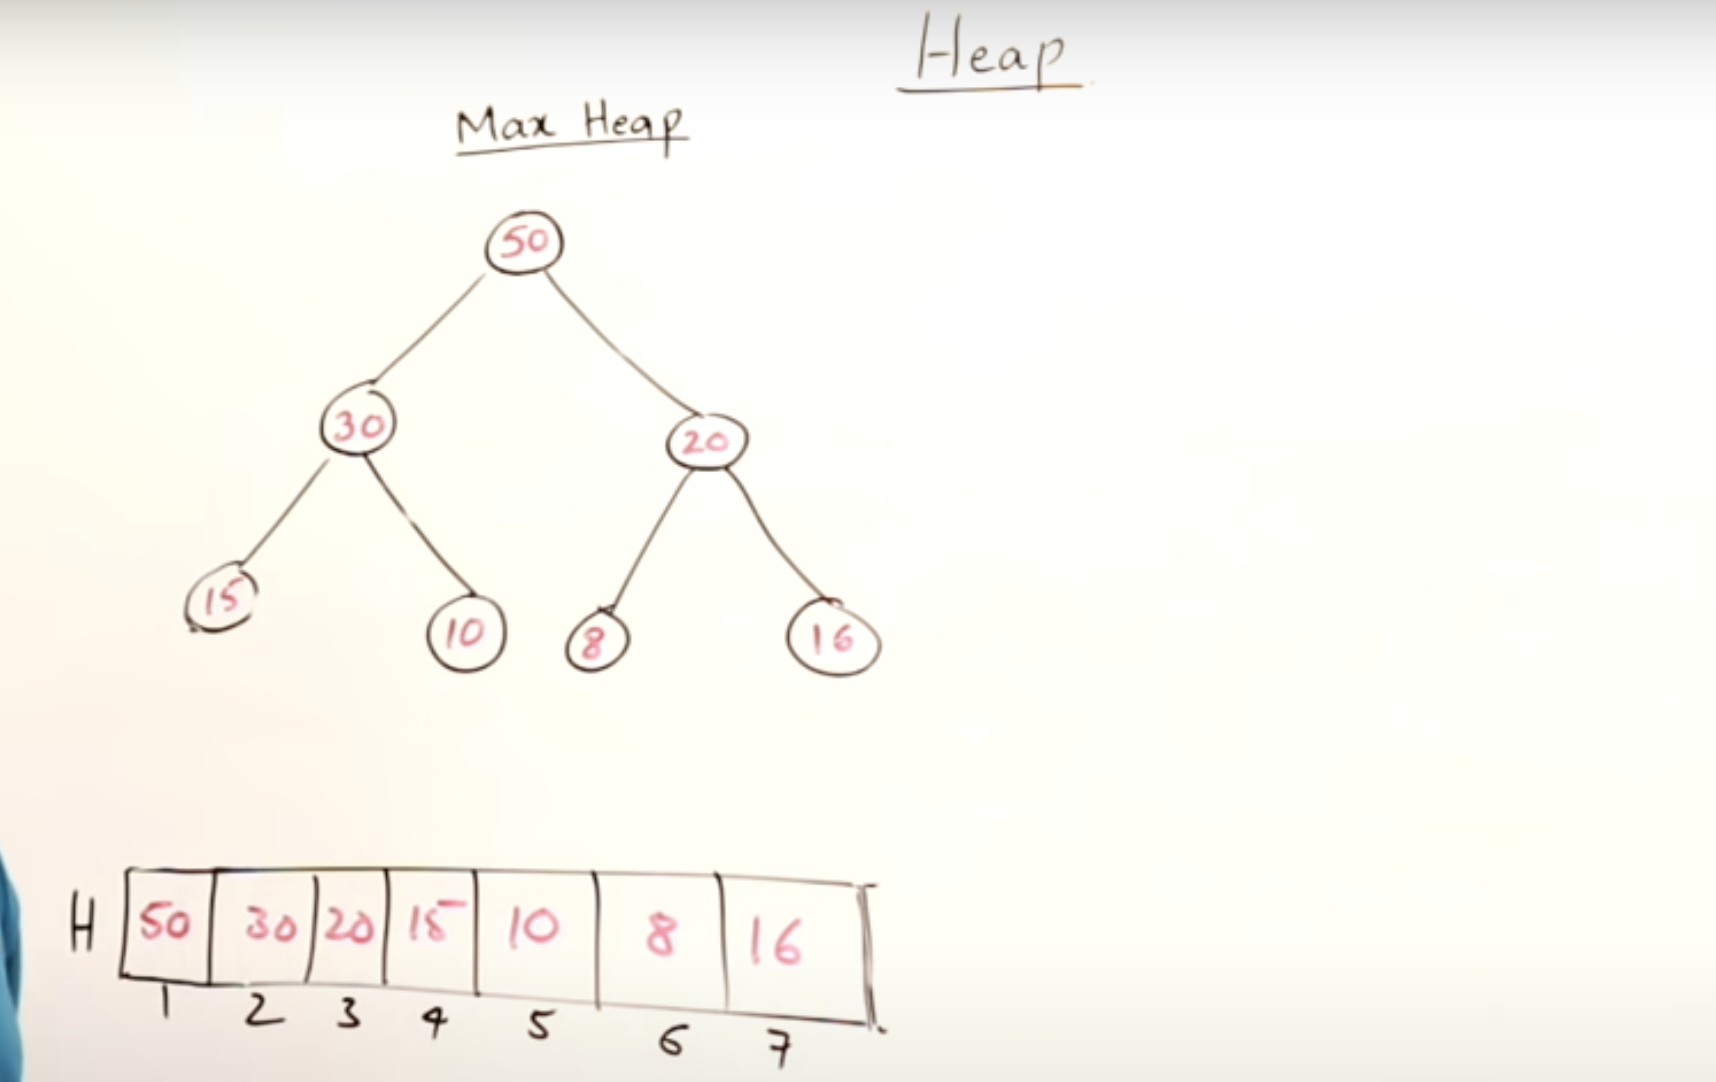 Heap
Max Heap
50
30 20
15 10 8 16
H 50 30 20 15 10 8 16
1 2 3 4 5 6 7